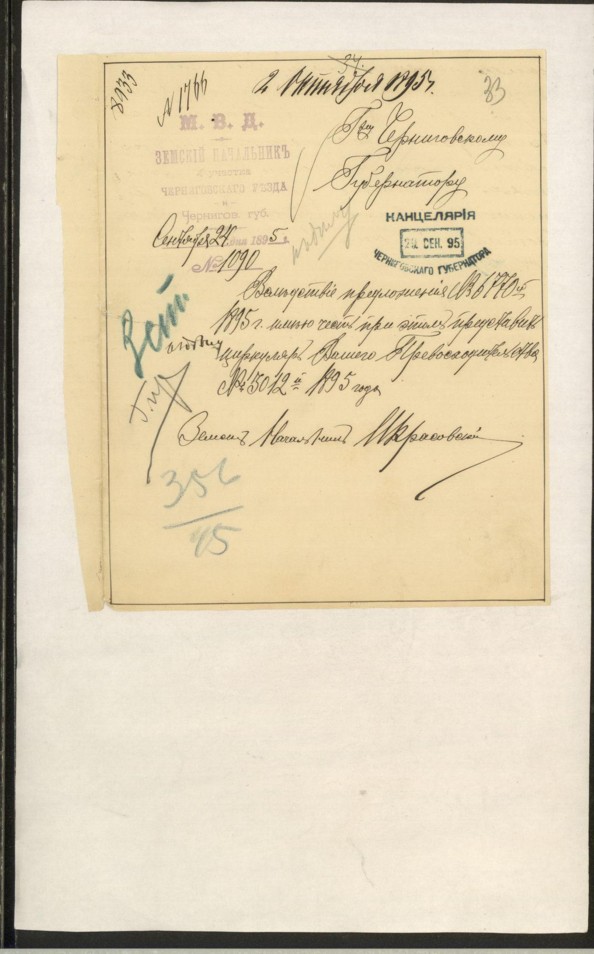 8933
N 1766
2 Октября 1895 г.
33
М. В. Д.
ЗЕМСКІЙ НАЧАЛЬНИКЪ
участка
ЧЕРНИГОВСКАГО УѢЗДА
Чернигов. губ.
Сентября 24 дня 1895 г.
№ 1090
Гну Черниговскому
Губернатору
КАНЦЕЛЯРІЯ
СЕН. 95
ЧЕРНИГОВСКАГО ГУБЕРНАТОРА
Вслѣдствіе предложенія
1895 г. имѣю честь при этомъ представить
циркуляръ Вашего Превосходительства
№ 5012 й 1895 года
Земскій Начальникъ
356
95